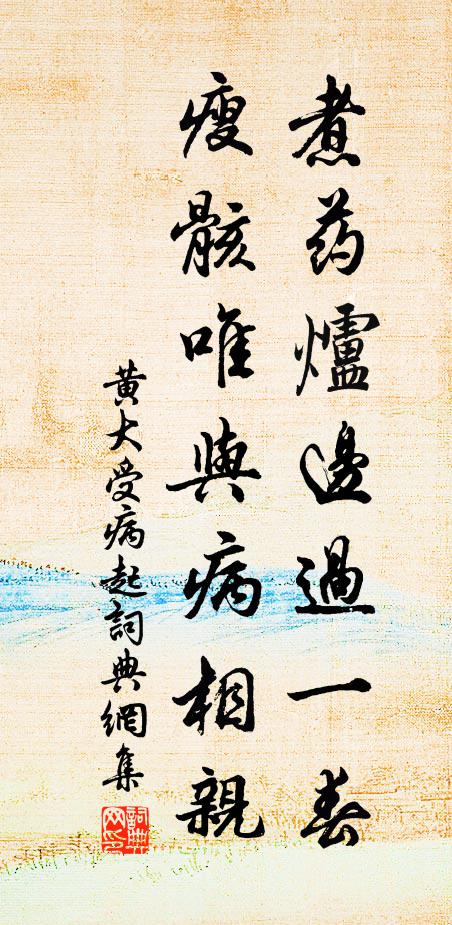 煮药爐邊過一春
瘦骸唯與病相親
黃大受病起詞典網集
詞典
网印